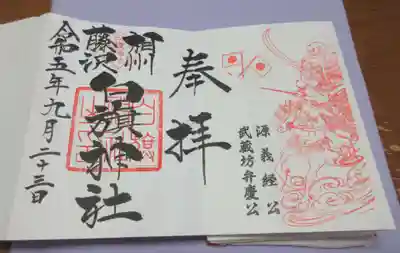 奉拝
源義経公
武蔵坊弁慶公
相州
藤沢
白旗神社
令和五年九月二十三日